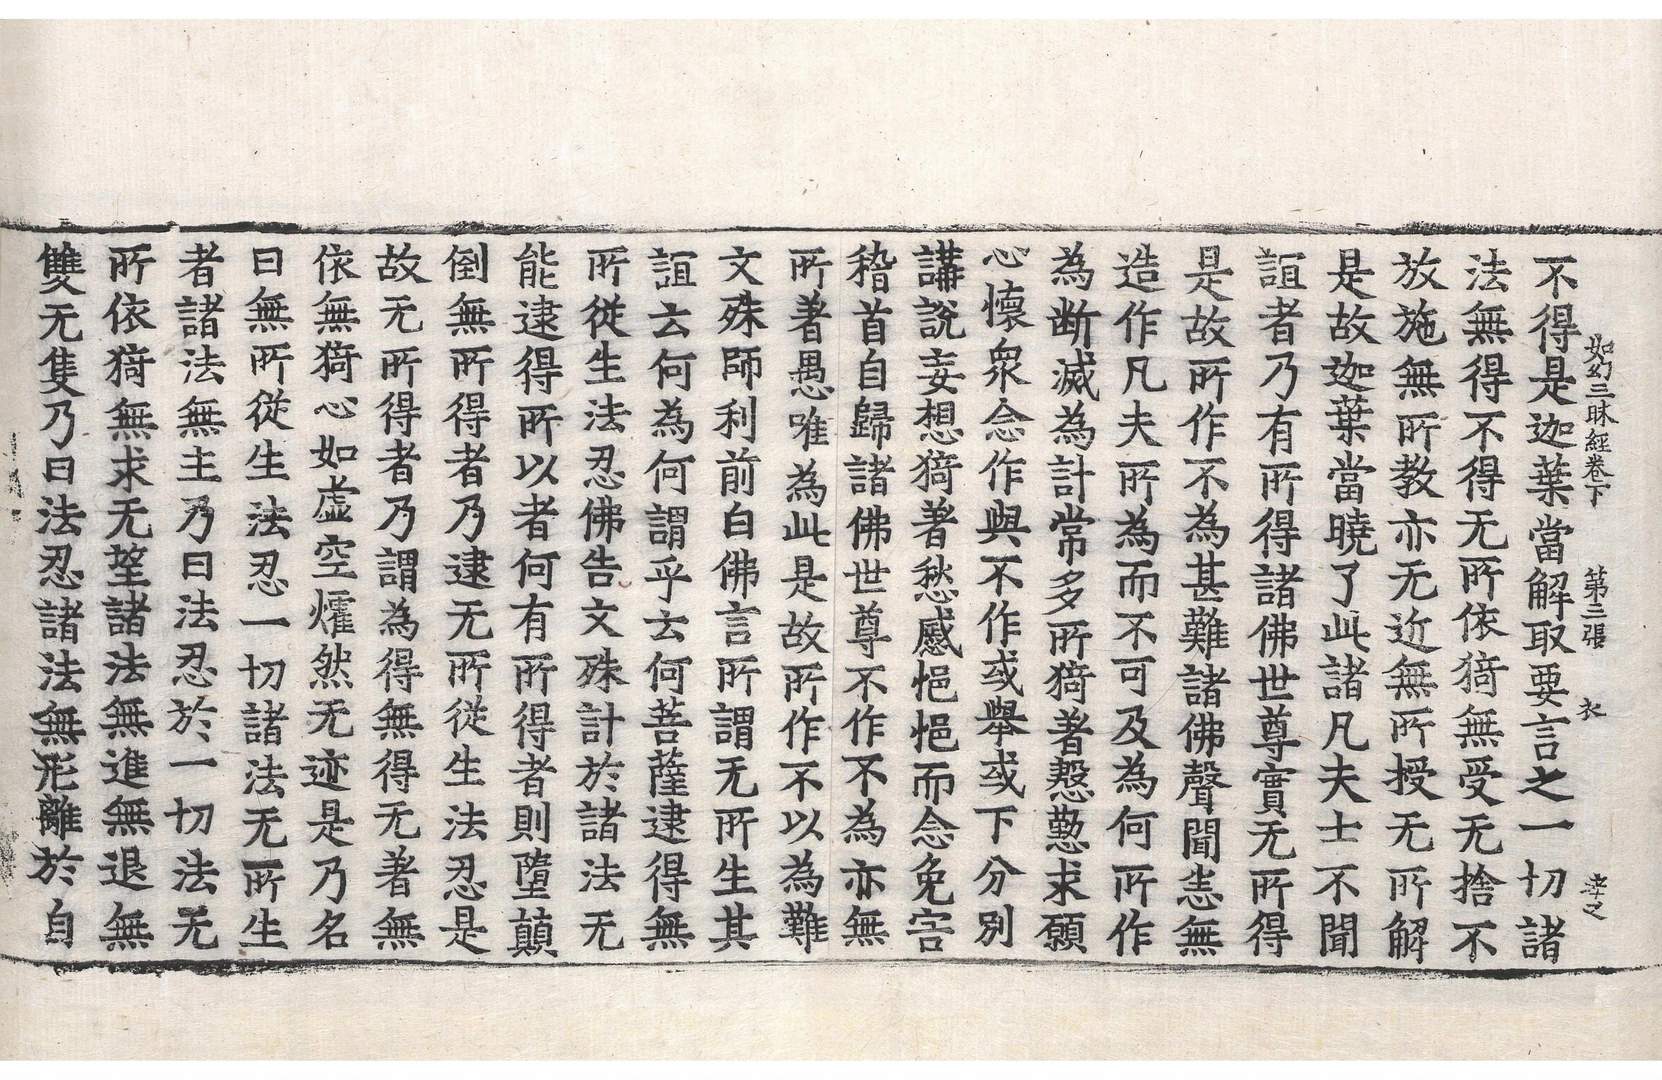 如幻三昧經卷下 第三張 衣 幸之
不得是迦葉當解取要言之一切諸
法無得不得无所依猗無受无捨不
放施無所教亦无近無所授无所解
是故迦葉當曉了此諸凡夫士不聞
誼者乃有所得諸佛世尊實无所得
是故所作不為甚難諸佛聲聞恚無
造作凡夫所為而不可及為何所作
為断滅為計常多所猗著慇懃求願
心懷衆念作與不作或舉或下分別
講說妄想猗著愁慼悒悒而念免害
稽首自歸諸佛世尊不作不為亦無
所著愚唯為此是故所作不以為難
文殊師利前白佛言所謂无所生其
誼云何為何謂乎云何菩薩逮得無
所從生法忍佛告文殊計於諸法无
能逮得所以者何有所得者則墮顛
倒無所得者乃逮无所從生法忍是
故无所得者乃謂為得無得无著無
依無猗心如虛空燿然无迹是乃名
曰無所從生法忍一切諸法无所生
者諸法無主乃曰法忍於一切法无
所依猗無求无望諸法無進無退無
雙无隻乃曰法忍諸法無形離於自